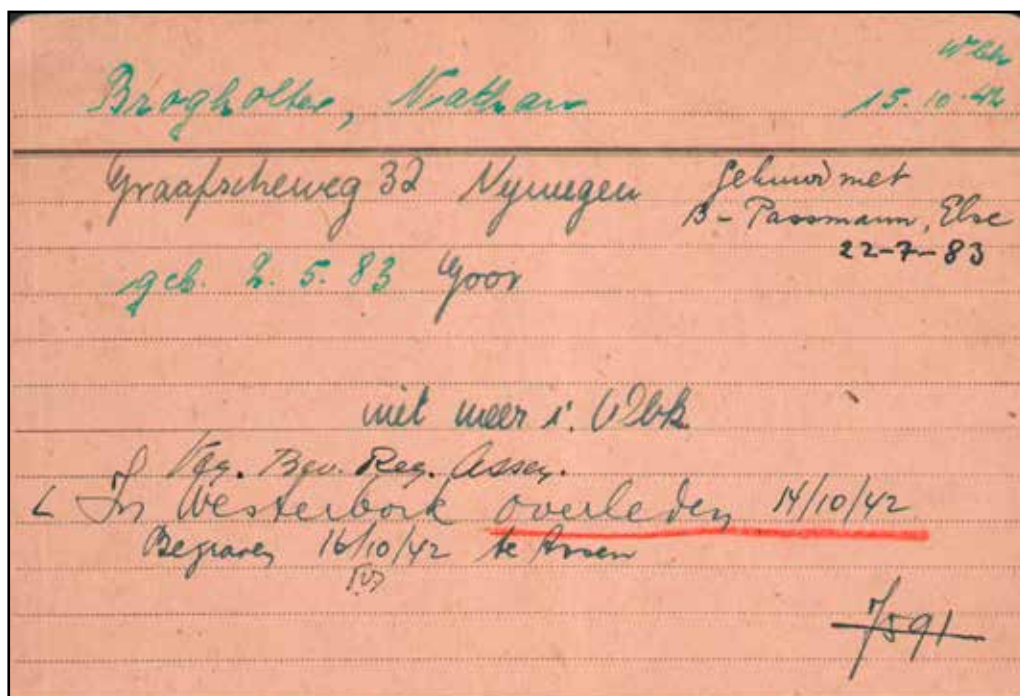 Brogholter, Nathan
W'bk
15.10.42
Graafscheweg 32 Nymegen
gehuwd met
B - Passmann, Else
22-7-83
geb. 2.5.83 Goor
niet meer i. Wbk.
Bev. Reg. Assen.
In Westerbork overleden 14/10/42
Begraven 16/10/42 te Assen
7591